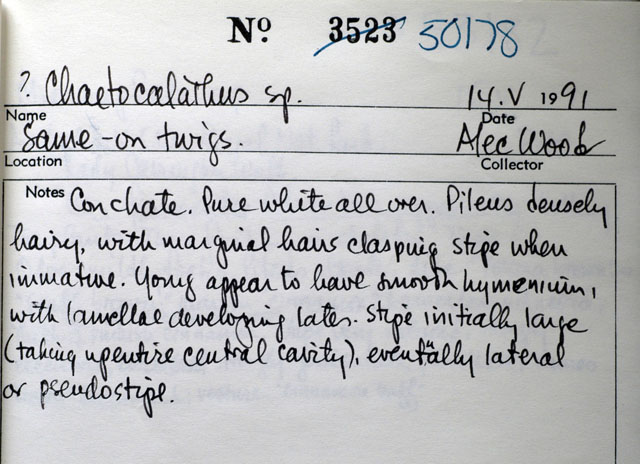 Nº 3523 50178
? Chaetocalathus sp. 14.V 1991
Name Date
Same - on twigs. Alec Wood
Location Collector
Notes Conchate. Pure white all over. Pileus densely
hairy, with marginal hairs clasping stipe when
immature. Young appear to have smooth hymenium,
with lamellae developing later. Stipe initially large
(taking up entire central cavity), eventually lateral
or pseudostipe.